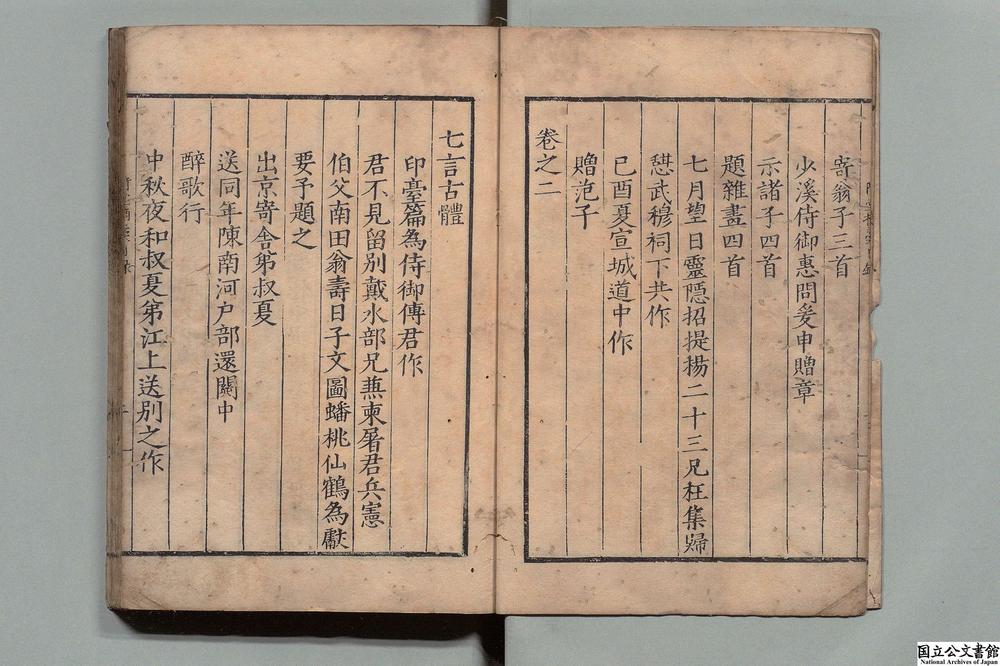 寄翁子三首
少溪侍御惠問爰申贈章
示諸子四首
題雜畫四首
七月望日靈隱招提楊二十三兄枉集歸
憇武穆祠下共作
已酉夏宣城道中作
贈范子
卷之二
七言古體
印臺篇為侍御傅君作
君不見留別戴水部兄兼柬屠君兵憲
伯父南田翁壽日子文圖蟠桃仙鶴為獻
要予題之
出京寄舍弟叔夏
送同年陳南河户部還關中
醉歌行
中秋夜和叔夏弟江上送別之作
国立公文書館
National Archives of Japan